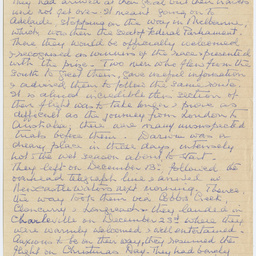 they had arrived at their goal their travels
were not yet over. It meant going on to
Adelaide stopping on the way in Melbourne,
which was then the seat of Federal Parliament.
There they would be officially welcomed
& welcomed as winners of the race & presented
with the prize. Two men who flew from the
South to greet them, gave useful information
& advised them to follow the same route.
It so happened that the section of
their flight was to take longer & prove as
difficult as the journey from London to
Australia, there were many unsuspected
trials before them. Darwin was a
dreary place in those days, intensely
hot & the wet season about to start.
They left on December 13th followed the
overhead telegraph line & arrived at
Newcastle Waters next morning. Thence
the way took them via Cobbs Creek,
Cloncurry & Longreach they landed in
Charleville on December 23rd where they
were warmly welcomed & well entertained.
Anxious to be on their way they resumed the
flight on Christmas Day. They had barely